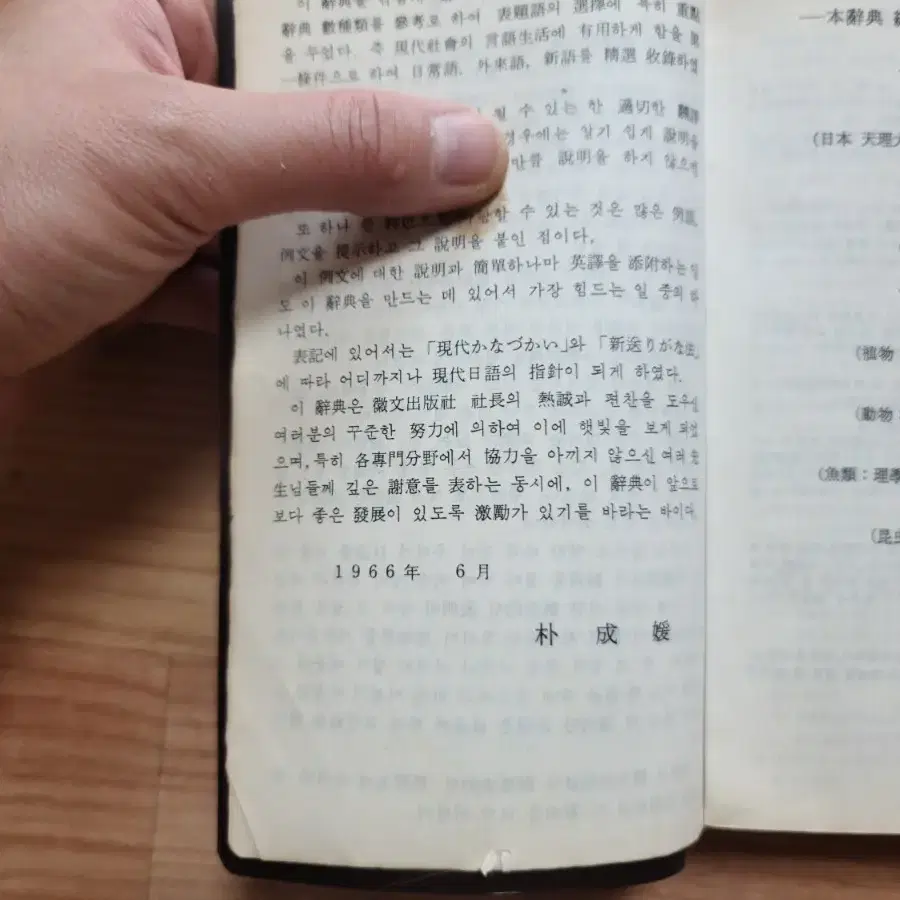 이 辭典을
辭典 數種類를 參考로 하여 表題語의 選擇에 특히 重點
을 두었다. 즉 現代社會의 言語生活에 有用하게 함을 第
一條件으로 하여 日常語, 外來語, 新語를 精選 收錄하였
될 수 있는 한 適切한 飜譯
경우에는 알기 쉽게 說明을
만큼 說明을 하지 않으면
또 하나 를 할 수 있는 것은 많은 例話,
例文을 提示하고 그 說明을 붙인 점이다.
이 例文에 대한 說明과 簡單하나마 英譯을 添附하는 일
도 이 辭典을 만드는 데 있어서 가장 힘드는 일 중의 하
나였다.
表記에 있어서는 「現代かなづかい」와 「新送りがな法」
에 따라 어디까지나 現代日語의 指針이 되게 하였다.
이 辭典은 徽文出版社 社長의 熱誠과 편찬을 도우신
여러분의 꾸준한 努力에 의하여 이에 햇빛을 보게 되었
으며, 특히 各專門分野에서 協力을 아끼지 않으신 여러 先
生님들께 깊은 謝意를 表하는 동시에, 이 辭典이 앞으로
보다 좋은 發展이 있도록 激勵가 있기를 바라는 바이다.
1966年 6月
朴成媛
—本辭典
(日本 天理大
(植物
(動物
(魚類：理學
(昆虫